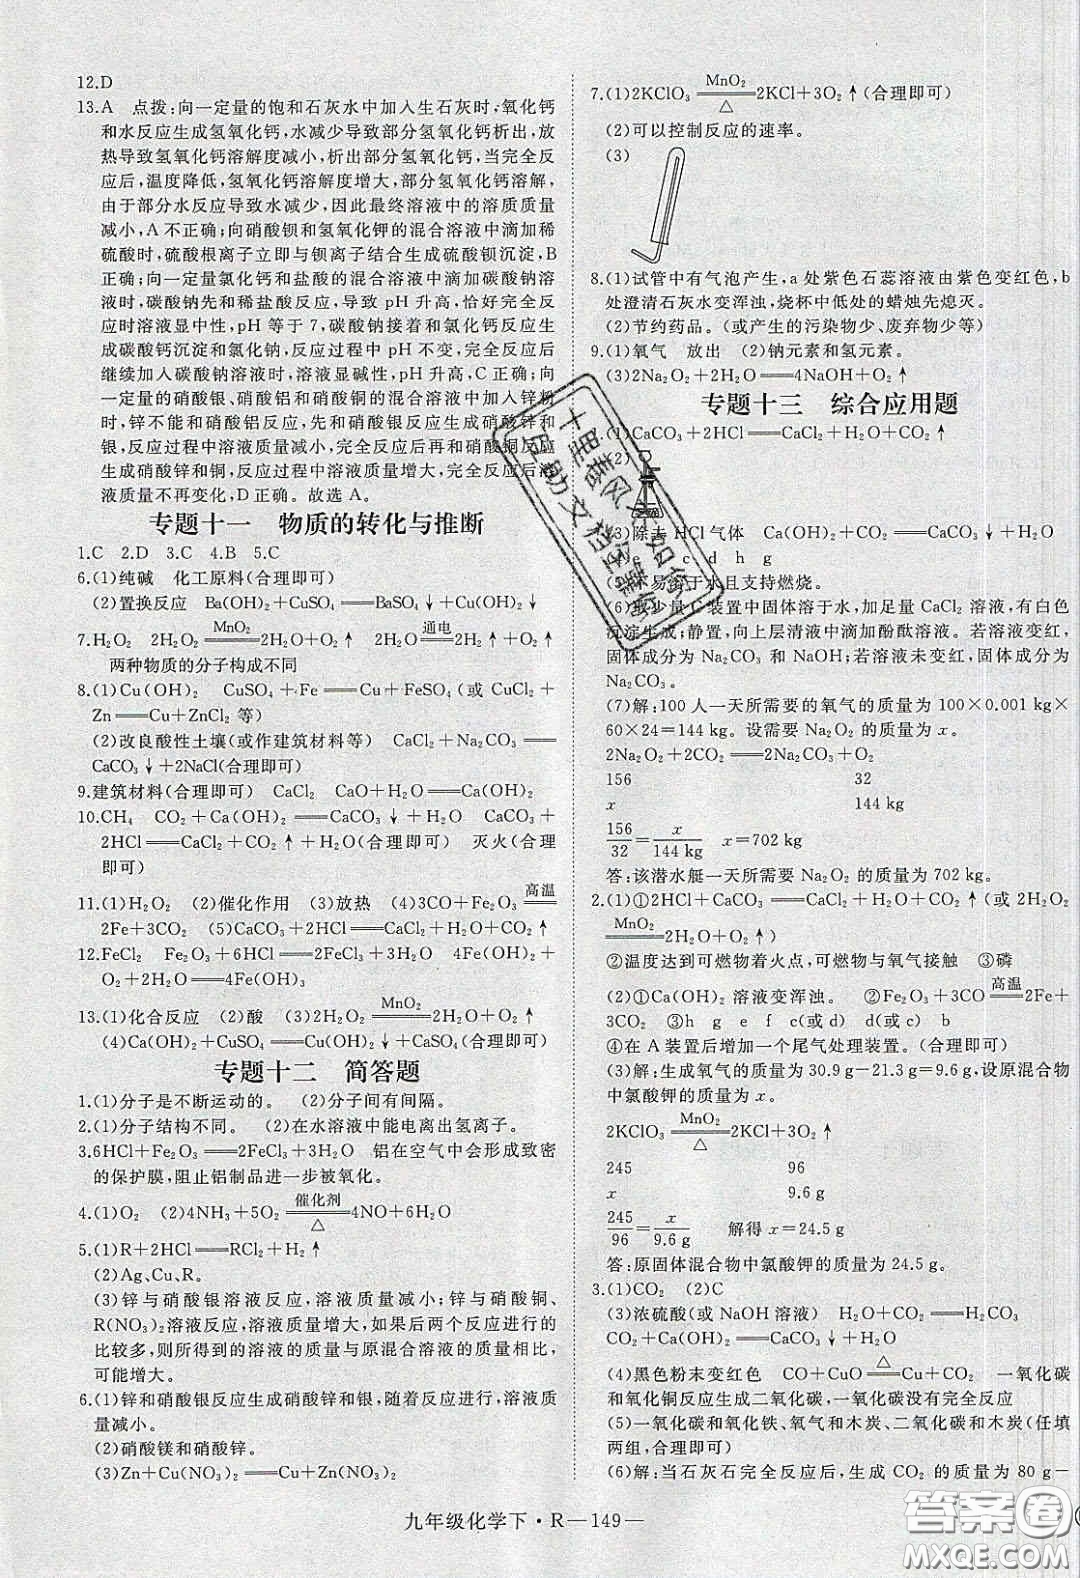 12.D
13.A　点拨:向一定量的饱和石灰水中加入生石灰时,氧化钙
和水反应生成氢氧化钙,水减少导致部分氢氧化钙析出,放
热导致氢氧化钙溶解度减小,析出部分氢氧化钙,当完全反
应后,温度降低,氢氧化钙溶解度增大,部分氢氧化钙溶解,
由于部分水反应,因此最终溶液中的溶质质量
减小,A不正确;向硝酸钡和氢氧化钾的混合溶液中滴加稀
硫酸时,硫酸根离子立即与钡离子结合生成硫酸钡沉淀,B
正确;向一定量氯化钙和盐酸的混合溶液中滴加碳酸钠
溶液时,碳酸钠先和稀盐酸反应,导致pH升高,恰好完全反
应时溶液显中性,pH等于7,碳酸钠接着和氯化钙反应生成
碳酸钙沉淀和氯化钠,反应过程中pH不变,完全反应后
继续加入碳酸钠溶液时,溶液显碱性,pH升高,C正确;向
一定量的硝酸银、硝酸铝和硝酸铜的混合溶液中加入锌粉
时,锌不能和硝酸铝反应,先和硝酸银反应生成硝酸锌和
银,反应过程中溶液质量减小,完全反应后再和硝酸铜反应
生成硝酸锌和铜,反应过程中溶液质量增大,完全反应后溶
液质量不再变化,D正确。故选A。
专题十一　物质的转化与推断
1.C　2.D　3.C　4.B　5.C
6.(1)纯碱　化工原料(合理即可)
(2)置换反应　Ba(OH)₂+CuSO₄══BaSO₄↓+Cu(OH)₂↓
7.H₂O₂　2H₂O₂ MnO₂══ 2H₂O+O₂↑　2H₂O 通电══ 2H₂↑+O₂↑
两种物质的分子构成不同
8.(1)Cu(OH)₂　CuSO₄+Fe══Cu+FeSO₄(或CuCl₂+
Zn══Cu+ZnCl₂等)
(2)改良酸性土壤(或作建筑材料等)　CaCl₂+Na₂CO₃══
CaCO₃↓+2NaCl(合理即可)
9.建筑材料(合理即可)　CaCl₂　CaO+H₂O══Ca(OH)₂
10.CH₄　CO₂+Ca(OH)₂══CaCO₃↓+H₂O　CaCO₃+
2HCl══CaCl₂+CO₂↑+H₂O(合理即可)　灭火(合理
即可)
11.(1)H₂O₂　(2)催化作用　(3)放热　(4)3CO+Fe₂O₃ 高温══
2Fe+3CO₂　(5)CaCO₃+2HCl══CaCl₂+H₂O+CO₂↑
12.FeCl₂　Fe₂O₃+6HCl══2FeCl₃+3H₂O　4Fe(OH)₂+
O₂+2H₂O══4Fe(OH)₃
13.(1)化合反应　(2)酸　(3)2H₂O₂ MnO₂══ 2H₂O+O₂↑
(4)Ca(OH)₂+CuSO₄══Cu(OH)₂↓+CaSO₄(合理即可)
专题十二　简答题
1.(1)分子是不断运动的。　(2)分子间有间隔。
2.(1)分子结构不同。　(2)在水溶液中能电离出氢离子。
3.6HCl+Fe₂O₃══2FeCl₃+3H₂O　铝在空气中会形成致密
的保护膜,阻止铝制品进一步被氧化。
4.(1)O₂　(2)4NH₃+5O₂ 催化剂══△ 4NO+6H₂O
5.(1)R+2HCl══RCl₂+H₂↑
(2)Ag、Cu、R。
(3)锌与硝酸银溶液反应,溶液质量减小;锌与硝酸铜、
R(NO₃)₂溶液反应,溶液质量增加,如果后两者中反应的
比较多,则所得到的溶液的质量与原混合溶液的质量相比,
可能增大。
6.(1)锌和硝酸银反应生成硝酸锌和银,随着反应进行,溶液质
量减小。
(2)硝酸镁和硝酸锌。
(3)Zn+Cu(NO₃)₂══Cu+Zn(NO₃)₂
7.(1)2KClO₃ MnO₂══△ 2KCl+3O₂↑(合理即可)
(2)可以控制反应的速率。
(3)
8.(1)试管中有气泡产生,a处紫色石蕊溶液由紫色变红色,b
处澄清石灰水变浑浊,烧杯中低处的蜡烛先熄灭。
(2)节约药品。(或产生的污染物少、废弃物少等)
9.(1)氧气　放出　(2)钠元素和氢元素。
(3)2Na₂O₂+2H₂O══4NaOH+O₂↑
专题十三　综合应用题
1.(1)CaCO₃+2HCl══CaCl₂+H₂O+CO₂↑
(2)
(3)除去HCl气体　Ca(OH)₂+CO₂══CaCO₃↓+H₂O
e　c　d　h　g
不易溶于水且支持燃烧。
(6)取少量C装置中固体溶于水,加足量CaCl₂溶液,有白色
沉淀生成;静置,向上层清液中滴加酚酞溶液。若溶液变红,
固体成分为Na₂CO₃和NaOH;若溶液未变红,固体成分为
Na₂CO₃。
(7)解:100人一天所需要的氧气的质量为100×0.001 kg×
60×24=144 kg。设需要Na₂O₂的质量为x。
2Na₂O₂+2CO₂══2Na₂CO₃+O₂
156　32
x　144 kg
156/32=x/144 kg　x=702 kg
答:该潜水艇一天所需要Na₂O₂的质量为702 kg。
2.(1)①2HCl+CaCO₃══CaCl₂+H₂O+CO₂↑(或2H₂O₂
MnO₂══ 2H₂O+O₂↑)
②温度达到可燃物着火点,可燃物与氧气接触　③磷
(2)①Ca(OH)₂溶液变浑浊。　②Fe₂O₃+3CO 高温══ 2Fe+
3CO₂　③h　g　e　f　c(或d)　d(或c)　b
④在A装置后增加一个尾气处理装置。(合理即可)
(3)解:生成氧气的质量为30.9 g−21.3 g=9.6 g,设原混合物
中氯酸钾的质量为x。
2KClO₃ MnO₂══△ 2KCl+3O₂↑
245　96
x　9.6 g
245/96=x/9.6 g　解得x=24.5 g
答:原固体混合物中氯酸钾的质量为24.5 g。
3.(1)CO₂　(2)C
(3)浓硫酸(或NaOH溶液)　H₂O+CO₂══H₂CO₃
CO₂+Ca(OH)₂══CaCO₃↓+H₂O
(4)黑色粉末变红色　CO+CuO △══ Cu+CO₂　一氧化碳
和氧化铜反应生成二氧化碳,一氧化碳没有完全反应
(5)一氧化碳和氧化铁、氧气和木炭、二氧化碳和木炭(任填
两组,合理即可)
(6)解:当石灰石完全反应后,生成CO₂的质量为80 g−
九年级化学下·R—149—
答案圈
MXQE.COM